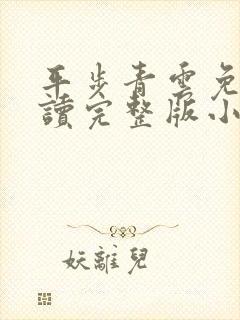 平步青雲免
讀完整版小
妖離兒